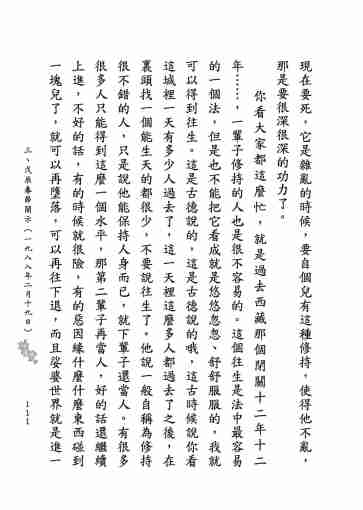 現在要死,它是雜亂的時候,要自個兒有這種修持,使得他不亂,
那是要很深很深的功力了。
你看大家都這麼忙,就是過去西藏那個閉關十二年十二
年⋯⋯,一輩子修持的人也是很不容易的。這個往生是法中最容易
的一個法,但是也不能把它看成就是悠悠忽忽、舒舒服服的,我就
可以得到往生。這是古德說的,這是古德說的哦,這古時候說你看
這城裡一天有多少人過去了,這一天裡這麼多人都過去了之後,在
裏頭找一個能生天的都很少,不要說往生了。他說一般自稱為修持
很不錯的人,只是說他能保持人身而已,就下輩子還當人。有很多
很多人只能得到這麼一個水平,那第二輩子再當人,好的話還繼續
上進,不好的話,有的時候就很險,有的惡因緣什麼什麼東西碰到
一塊兒了,就可以再墮落,可以再往下退,而且娑婆世界就是進一
三、戊辰春節開示(一九八八年二月十九日)
111